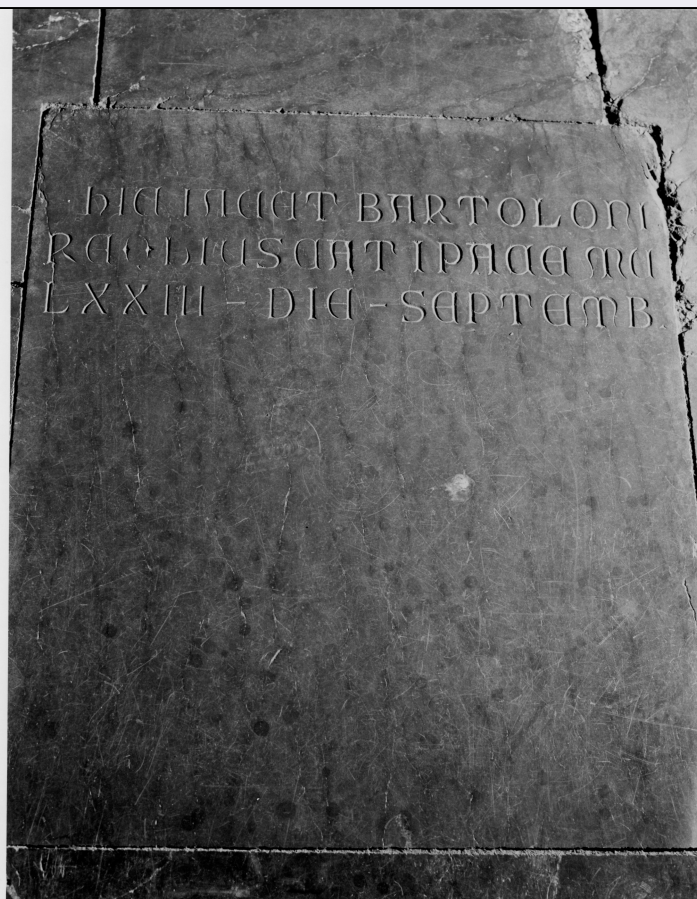 HIC IACET BARTOLONI
REGLIUSCAT IPACE MC
LXXIII - DIE - SEPTEMB.